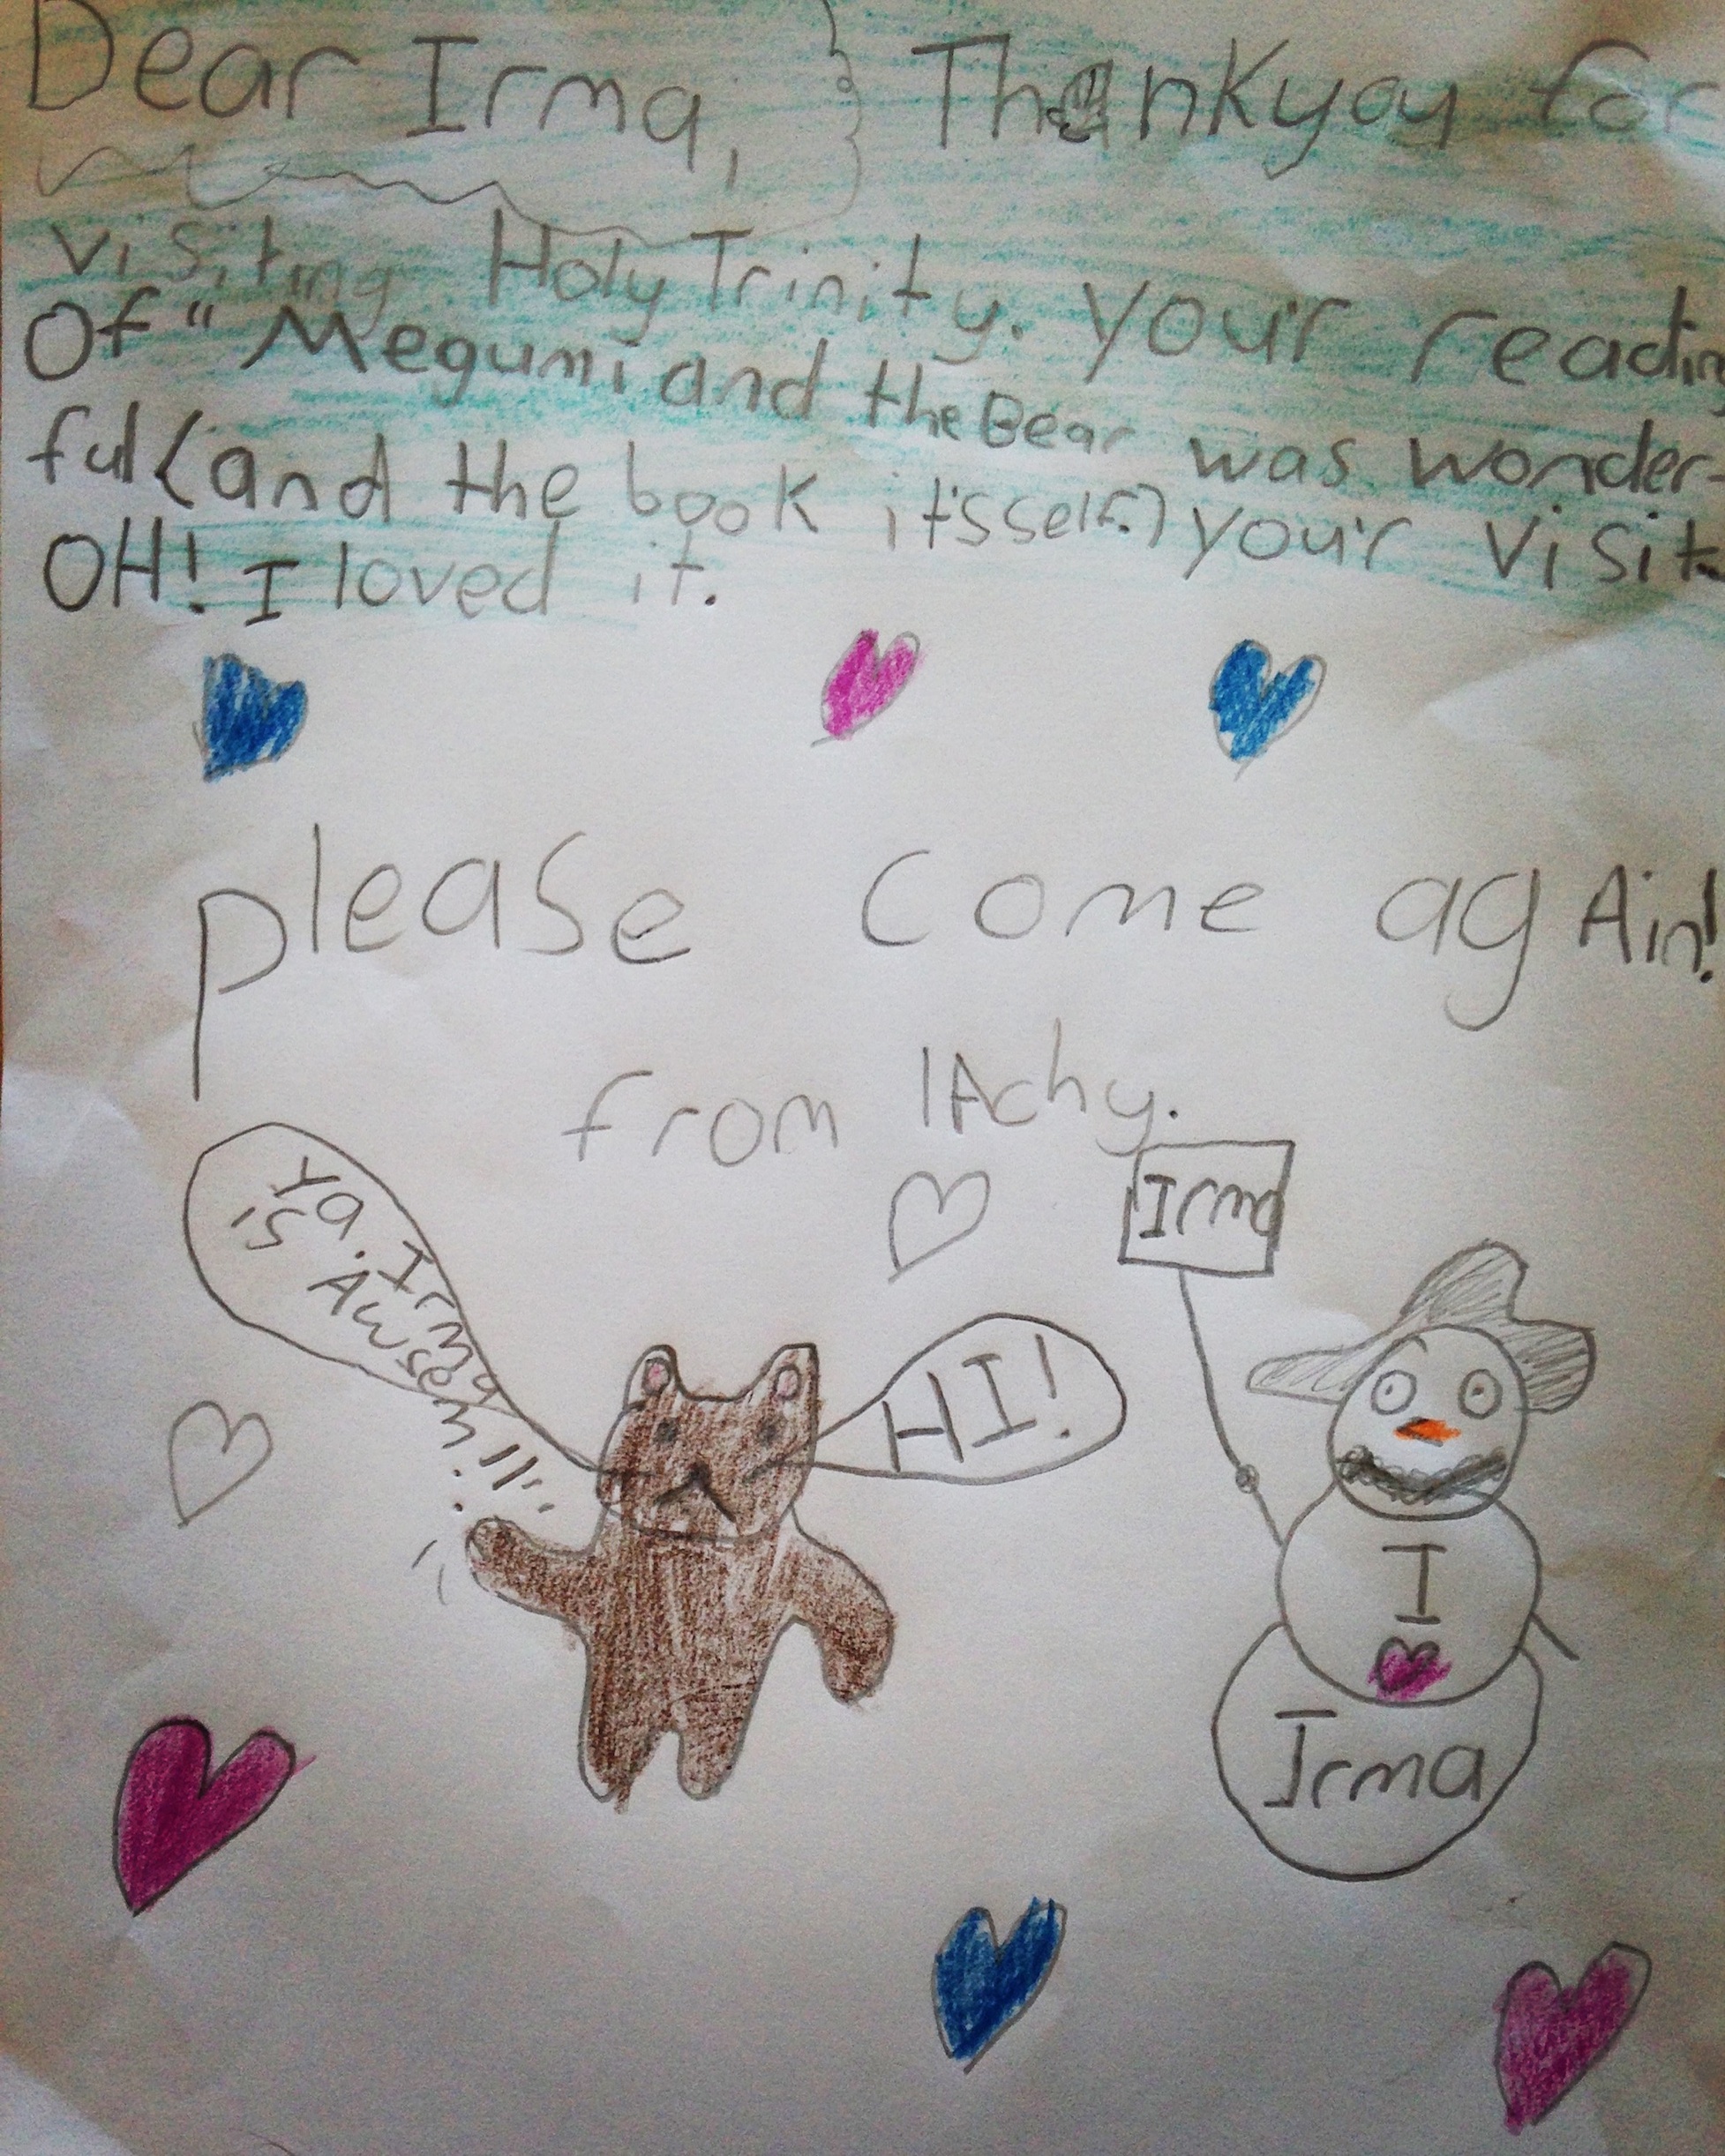 Dear Irma, } Thankyou for
visiting Holy Trinity. Your reading
Of "Megumi and the Bear was wonder-
ful (and the book it'sself.) your visit
OH! I loved it.
please come agAin!
from lAchy.
Irma
Ya. Irma
is Awsem!!!
HI!
I
Irma